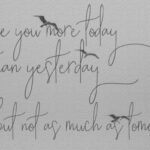 e you more today
an yesterday
but not as much as tomo